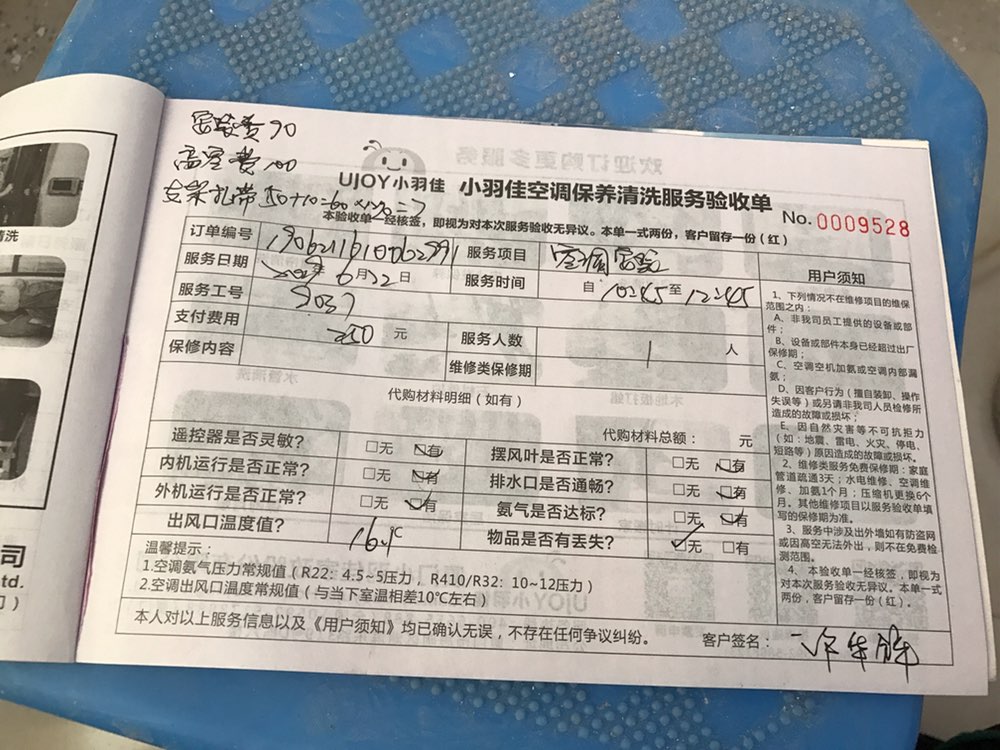 安装费90
高空费100
支架扎带50+10=60
UJOY小羽佳 小羽佳空调保养清洗服务验收单
No.0009528
本验收单一经核签，即视为对本次服务验收无异议。本单一式两份，客户留存一份（红）
订单编号 服务项目 空调安装
服务日期 6月22日 服务时间 自10:45至12:45
服务工号
支付费用 250 元 服务人数 1 人
保修内容 维修类保修期
代购材料明细（如有）
代购材料总额： 元
遥控器是否灵敏? □无 □有 摆风叶是否正常? □无 □有
内机运行是否正常? □无 □有 排水口是否通畅? □无 □有
外机运行是否正常? □无 □有 氨气是否达标? □无 □有
出风口温度值? 16.1℃ 物品是否有丢失? □无 □有
温馨提示：
1.空调氨气压力常规值（R22：4.5~5压力，R410/R32：10~12压力）
2.空调出风口温度常规值（与当下室温相差10℃左右）
本人对以上服务信息以及《用户须知》均已确认无误，不存在任何争议纠纷。 客户签名：
用户须知
1、下列情况不在维修项目的维保
范围之内：
A、非我司员工提供的设备或部
件；
B、设备或部件本身已经超过出厂
保修期；
C、空调空机加氨或空调内部漏
氨；
D、因客户行为（擅自装卸、操作
失误等）或另请非我司人员检修所
造成的故障或损坏；
E、因自然灾害等不可抗拒力
（如：地震、雷电、火灾、停电、
短路等）原因造成的故障或损坏。
2、维修类服务免费保修期：家庭
管道疏通3天；水电维修、空调维
修、加氨1个月；压缩机更换6个
月。其他维修项目以服务验收单填
写的保修期为准。
3、服务中涉及出外墙如有防盗网
或因高空无法外出，则不在免费检
测范围。
4、本验收单一经核签，即视为
对本次服务验收无异议。本单一式
两份，客户留存一份（红）。
清洗
司
td.